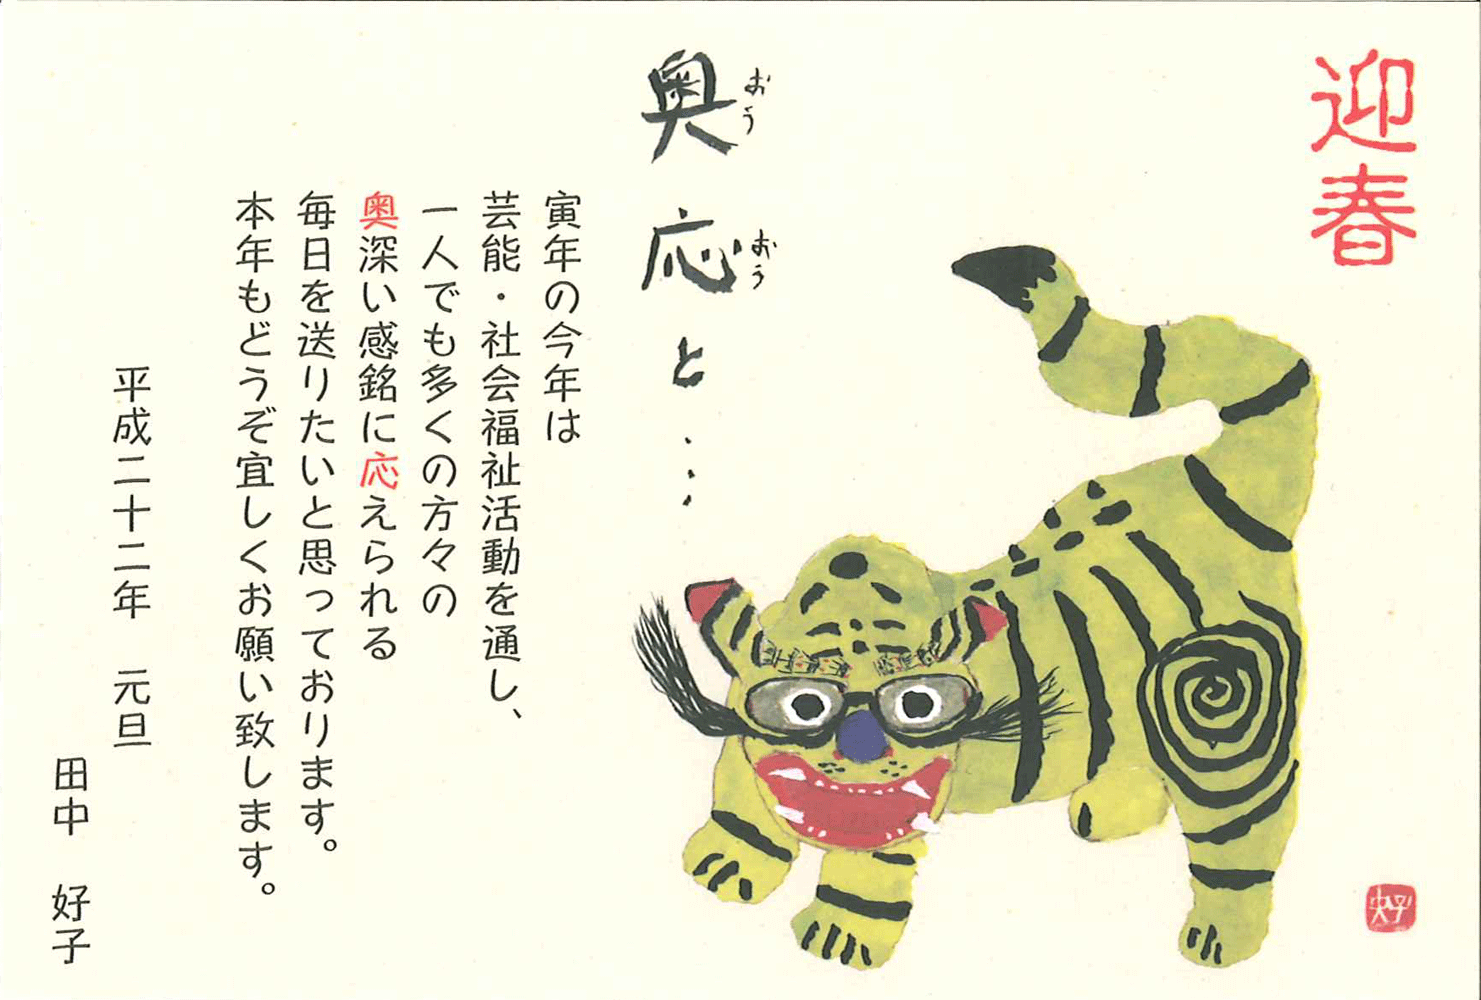 迎春
奥応と・・・
おう
おう
寅年の今年は
芸能・社会福祉活動を通し、
一人でも多くの方々の
奥深い感銘に応えられる
毎日を送りたいと思っております。
本年もどうぞ宜しくお願い致します。
平成二十二年 元旦
田中 好子
好